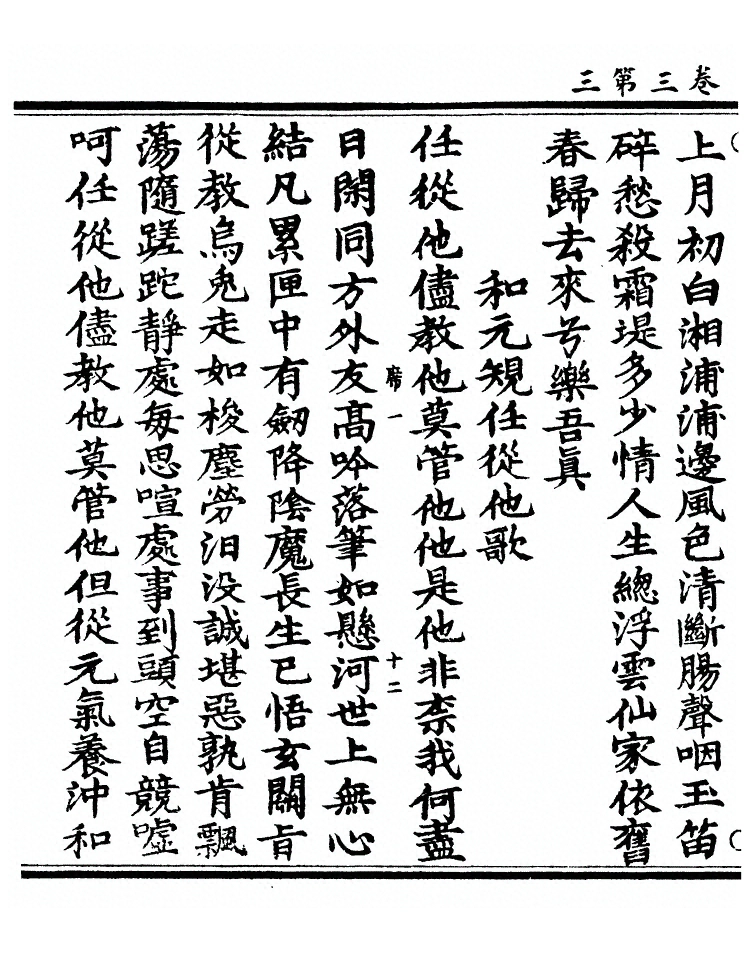 卷三第三
上月初白湘浦浦邊風色清斷腸聲咽玉笛
碎愁殺霜堤多少情人生總浮雲仙家依舊
春歸去來兮樂吾眞
和元規任從他歌
任從他儘教他莫管他他是他非柰我何盡
席一
十二
日閑同方外友高吟落筆如懸河世上無心
結凡累匣中有劒降陰魔長生已悟玄關旨
從教烏兎走如梭塵勞汩没誠堪惡孰肯飄
蕩隨蹉跎靜處每思喧處事到頭空自競噓
呵任從他儘教他莫管他但從元氣養沖和